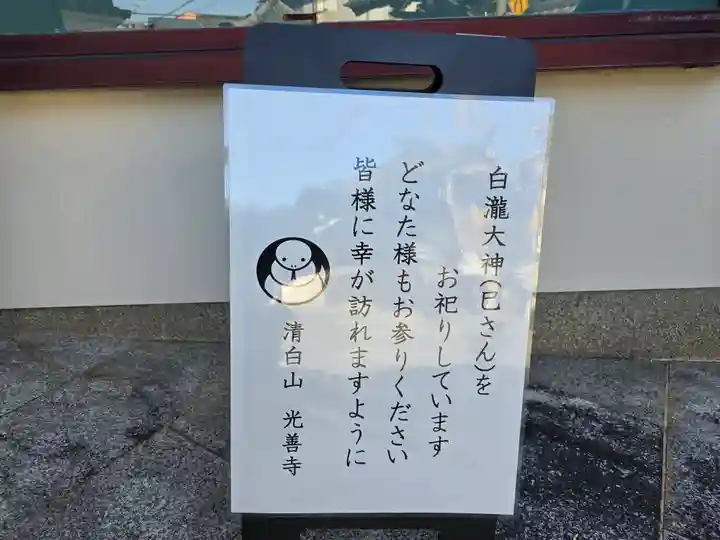 白瀧大神(巳さん)を
お祀りしています
どなた様もお参りください
皆様に幸が訪れますように
清白山 光善寺